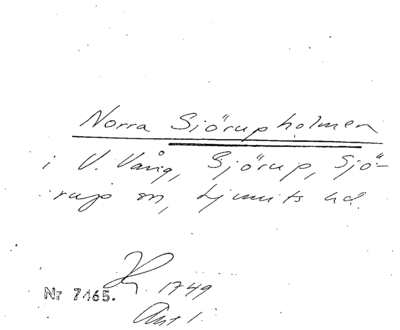 Norra Sjörupholmen
i V. Vång, Sjörup, Sjö-
rup sn, Ljunits hd.
1749
Nr 7165.
Akt 1.